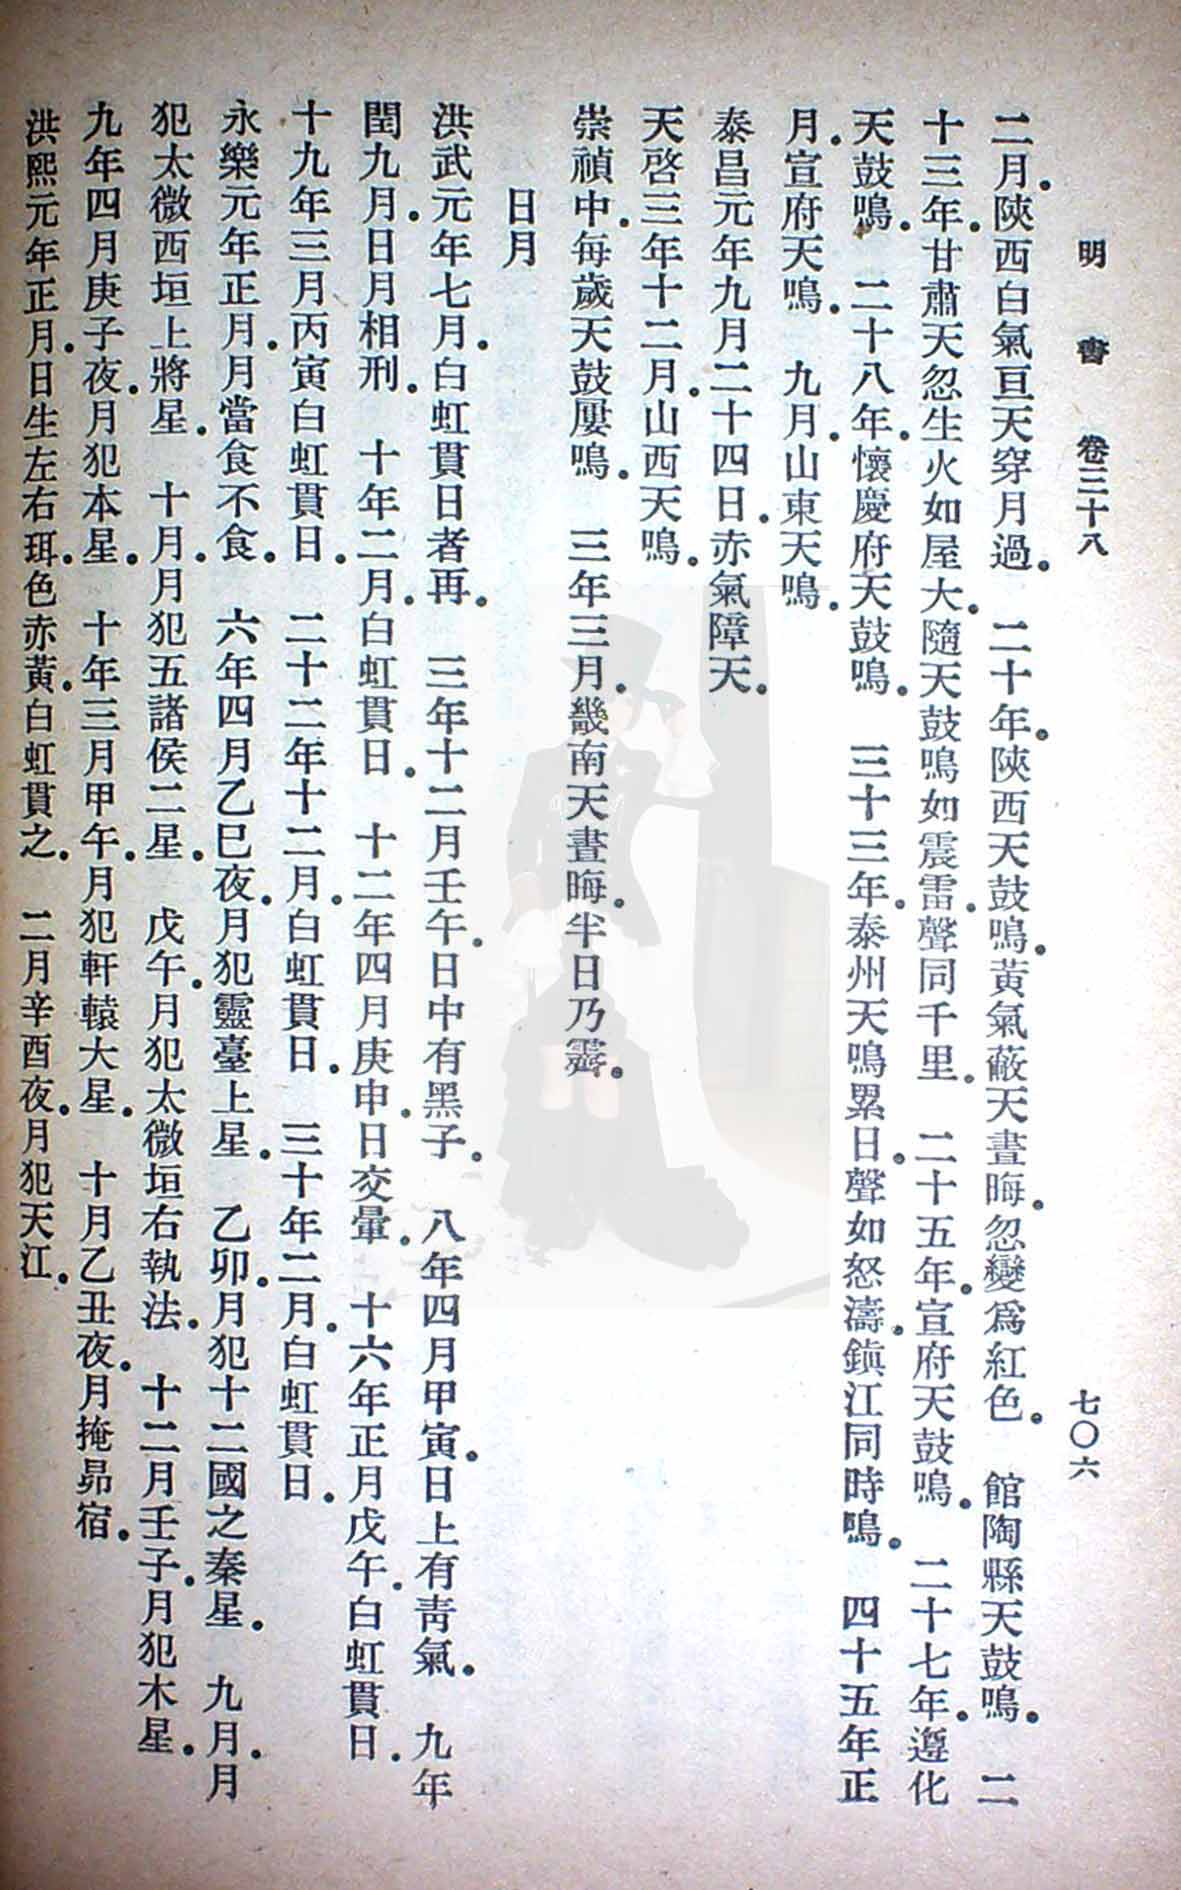 明書 卷三十八 七〇六
二月。陝西白氣亘天穿月過。　二十年。陝西天鼓鳴。黃氣蔽天晝晦。忽變爲紅色。　館陶縣天鼓鳴。　二
十三年。甘肅天忽生火如屋大。隨天鼓鳴如震雷。聲同千里。　二十五年。宣府天鼓鳴。　二十七年。遵化
天鼓鳴。　二十八年。懷慶府天鼓鳴。　三十三年。泰州天鳴累日。聲如怒濤。鎭江同時鳴。　四十五年正
月。宣府天鳴。　九月。山東天鳴。
泰昌元年九月二十四日。赤氣障天。
天啓三年十二月。山西天鳴。
崇禎中。每歲天鼓屢鳴。　三年三月。畿南天晝晦。半日乃霽。
日月
洪武元年七月。白虹貫日者再。　三年十二月壬午。日中有黑子。　八年四月甲寅。日上有靑氣。　九年
閏九月。日月相刑。　十年二月。白虹貫日。　十二年四月庚申。日交暈。　十六年正月戊午。白虹貫日。
十九年三月丙寅白虹貫日。　二十二年十二月。白虹貫日。　三十年二月。白虹貫日。
永樂元年正月。月當食不食。　六年四月乙巳夜。月犯靈臺上星。　乙卯。月犯十二國之秦星。　九月。月
犯太微西垣上將星。　十月。月犯五諸侯二星。　戊午。月犯太微垣右執法。　十二月壬子。月犯木星。
九年四月庚子夜。月犯本星。　十年三月甲午。月犯軒轅大星。　十月乙丑夜。月掩昴宿。
洪熙元年正月。日生左右珥。色赤黃。白虹貫之。　二月辛酉夜。月犯天江。